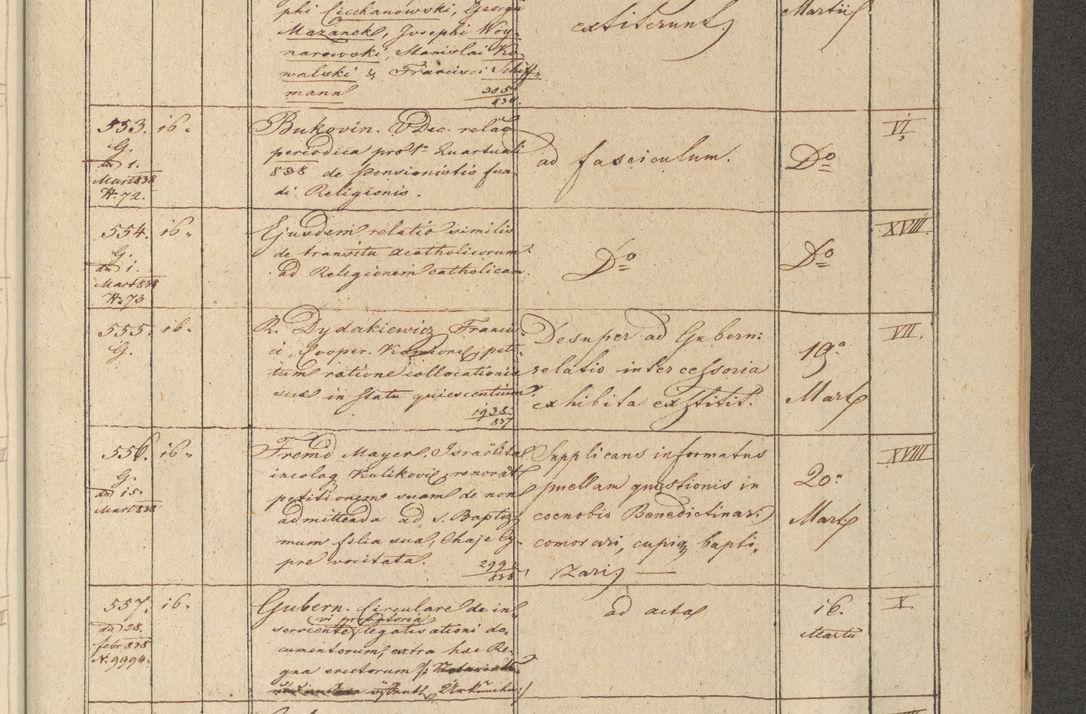 phi Cicchanowski, Georgii
Mazanek, Josephi Woy-
narowski, Stanislai Ko-
walski & Francisci Schiff-
mann
305
838
extiterunt
Martii
553. 16.
G.
dd 1.
Mart 838
N. 72.
Bukovin. Dec. relatio
periodica pro 1. Quartuali
838 de pensionistis fun-
di Religionis.
ad fasciculum.
Do
VI.
554. 16.
G.
dd 1.
Mart 838
N. 73
Ejusdem relatio similis
de transitu acatholicorum
ad Religionem catholicam
Do
Do
XVIII.
555. 16.
G.
R. Dydakiewicz Francis-
ci, Cooper. peti-
tum ratione collocationis
suae in statu quiescentium
1938
837
Desuper ad Gubern:
relatio intercessoria
exhibita exstitit.
19.
Mart
VII.
556. 16.
G.
dd 15.
Mart 838
Fremd Mayer Israëlita
incola Kulikovi, renovat
petitionem suam de non
admittenda ad S. Baptis-
mum filia sua, Chaje Cy-
pre vocitata.
299
838
Supplicans informatus
puellam quaestionis in
coenobio Benedictinar:
comorari, cupiq bapti-
zari
20.
Mart
XVIII
557. 16.
dd 28.
febr 838
N. 9994.
Gubern. Circulare de in-
vi probatoria
serviente legalisationi do-
cumentorum extra hac Re-
gna erectorum
Urkunden:/
ad acta
16.
Martii
X.